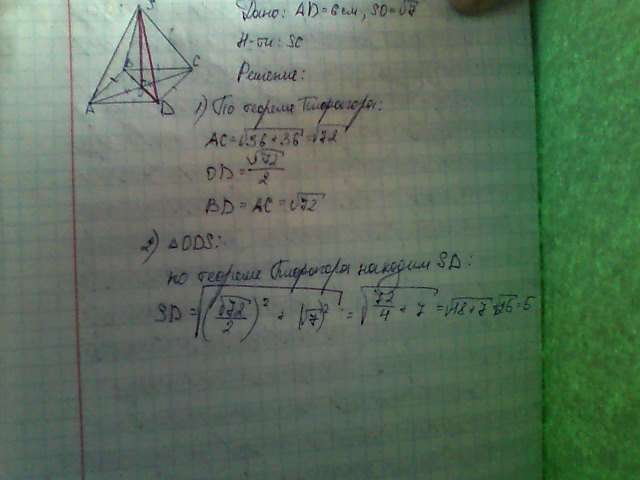 S
B C
O
A D
Дано: AD = 6 см, SO = √7
Н-ти: SC
Решение:
1) По теореме Пифагора:
AC = √36 + 36 = √72
OD = √72 / 2
BD = AC = √72
2) △ODS:
по теореме Пифагора находим SD:
SD = √(√72 / 2)² + (√7)² = √72 / 4 + 7 = √18 + 7 = √25 = 5